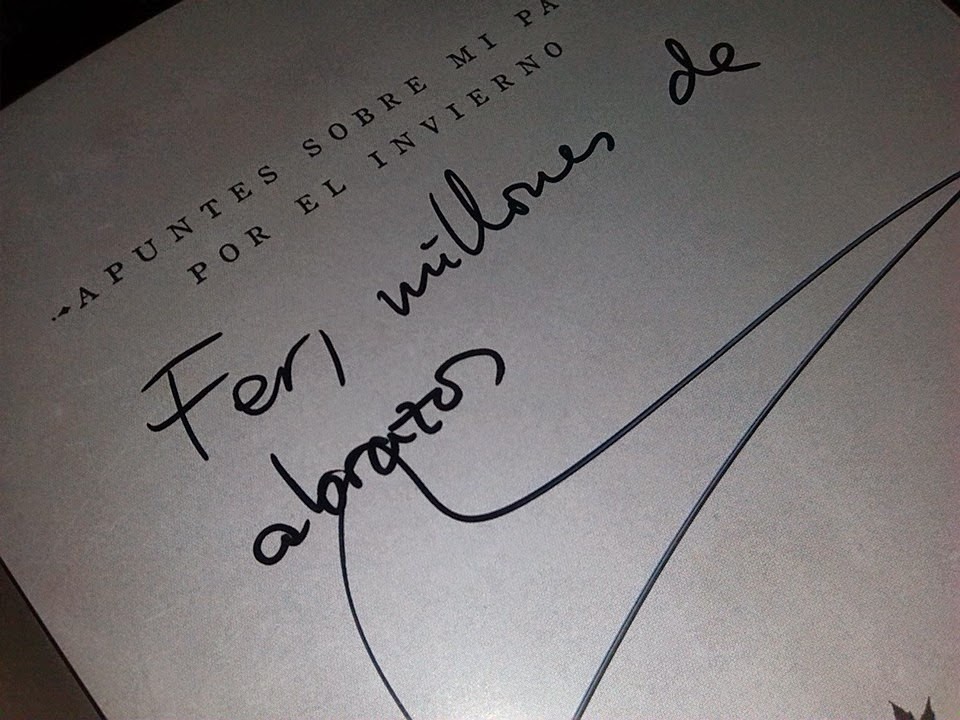 APUNTES SOBRE MI PA
POR EL INVIERNO
Feri, millones de
abrazos